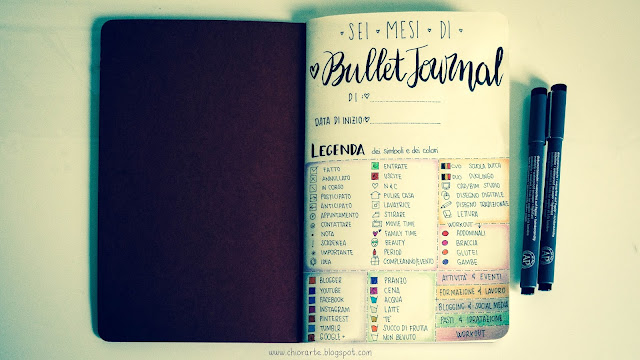 SEI MESI DI
Bullet Journal
DI:
DATA DI INIZIO:
LEGENDA dei simboli e dei colori
FATTO
ANNULLATO
IN CORSO
POSTICIPATO
ANTICIPATO
APPUNTAMENTO
CONTATTARE
NOTA
SCADENZA
IMPORTANTE
IDEA
ENTRATE
USCITE
N & C
PULIRE CASA
LAVATRICE
STIRARE
MOVIE TIME
FAMILY TIME
BEAUTY
PERIOD
COMPLEANNO/EVENTO
DUO SCUOLA GUIDA
DUO DUOLINGO
DISEGNO DIGITALE
DISEGNO TRADIZIONALE
LETTURA
WORKOUT
ADDOMINALI
BRACCIA
GLUTEI
GAMBE
BLOGGER
YOUTUBE
FACEBOOK
INSTAGRAM
PINTEREST
TUMBLR
GOOGLE+
PRANZO
CENA
ACQUA
LATTE
TE'
SUCCO DI FRUTTA
NON BEVUTO
ATTIVITÀ & EVENTI
FORMAZIONE & LAVORO
BLOGGING & SOCIAL MEDIA
PASTI & IDRATAZIONE
WORKOUT
www.chiorarte.blogspot.com